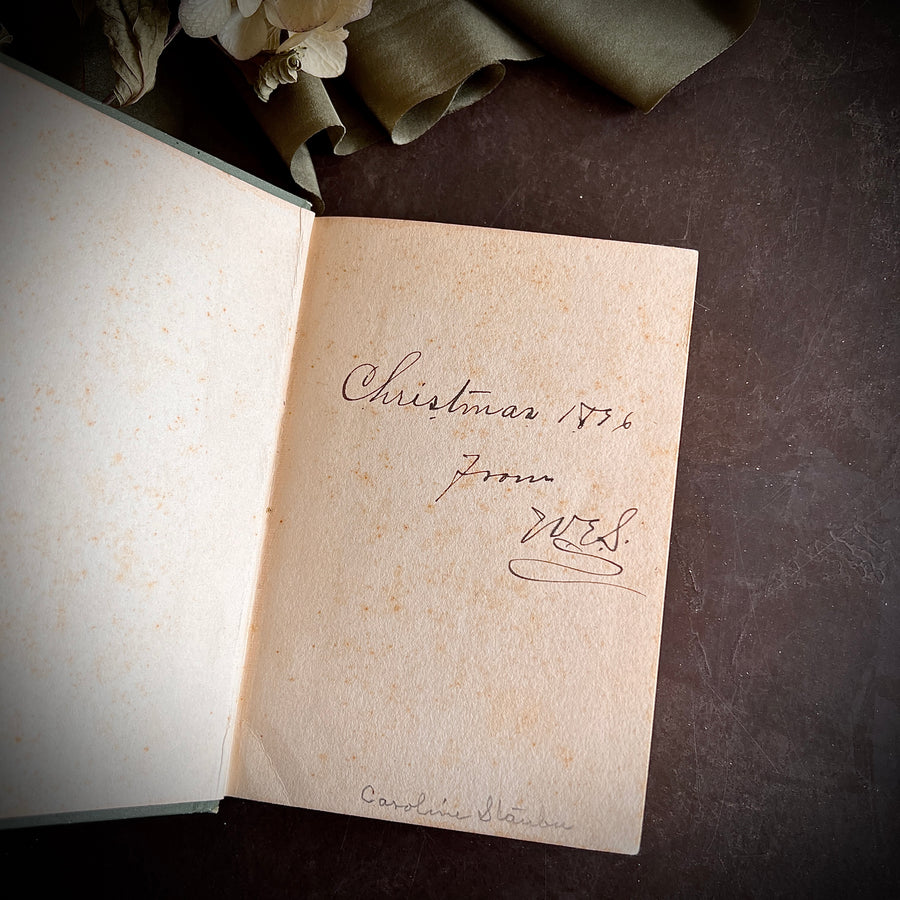 Christmas 1896
From
W.E.S.
Caroline